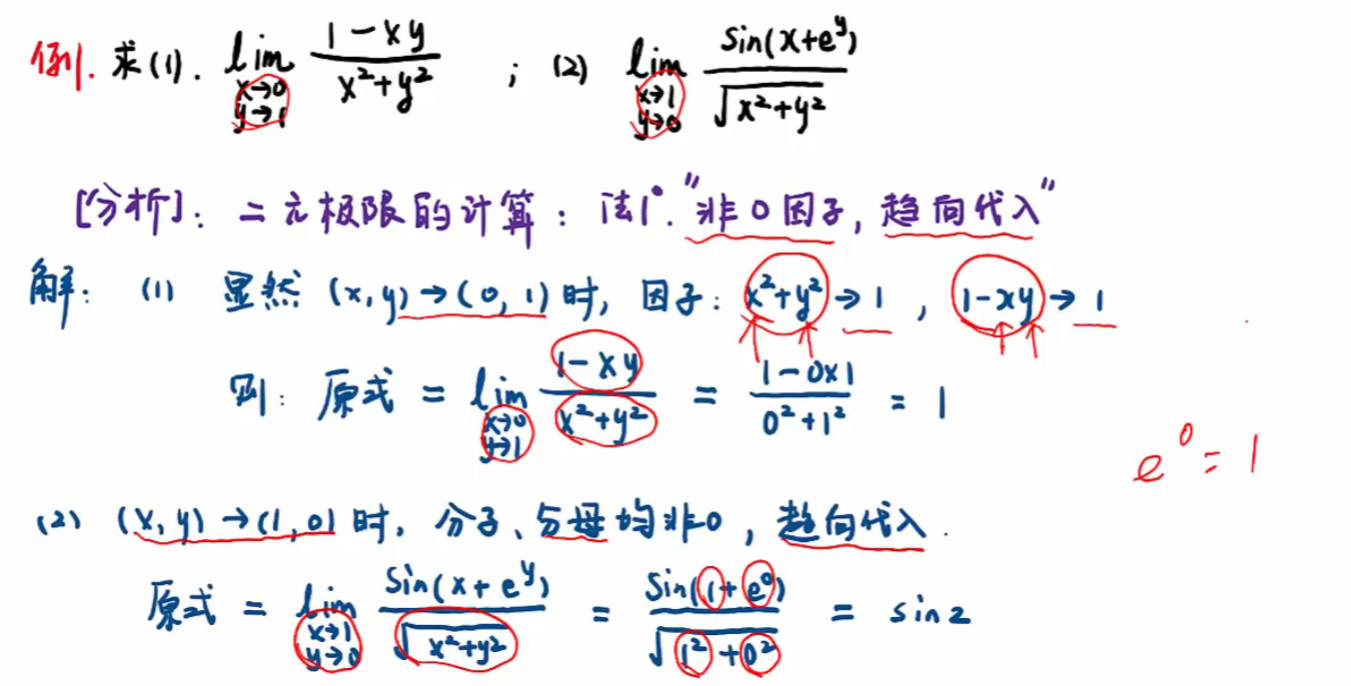 例. 求(1). lim_{x→0, y→1} (1-xy)/(x²+y²) ; (2) lim_{x→1, y→0} sin(x+e^y)/√(x²+y²)
[分析]: 二元极限的计算: 法1°. "非0因子, 趋向代入"
解: (1) 显然 (x,y)→(0,1)时, 因子: x²+y²→1, 1-xy→1
则: 原式 = lim_{x→0, y→1} (1-xy)/(x²+y²) = (1-0×1)/(0²+1²) = 1
e⁰=1
(2) (x,y)→(1,0)时, 分子、分母均非0, 趋向代入.
原式 = lim_{x→1, y→0} sin(x+e^y)/√(x²+y²) = sin(1+e⁰)/√(1²+0²) = sin2